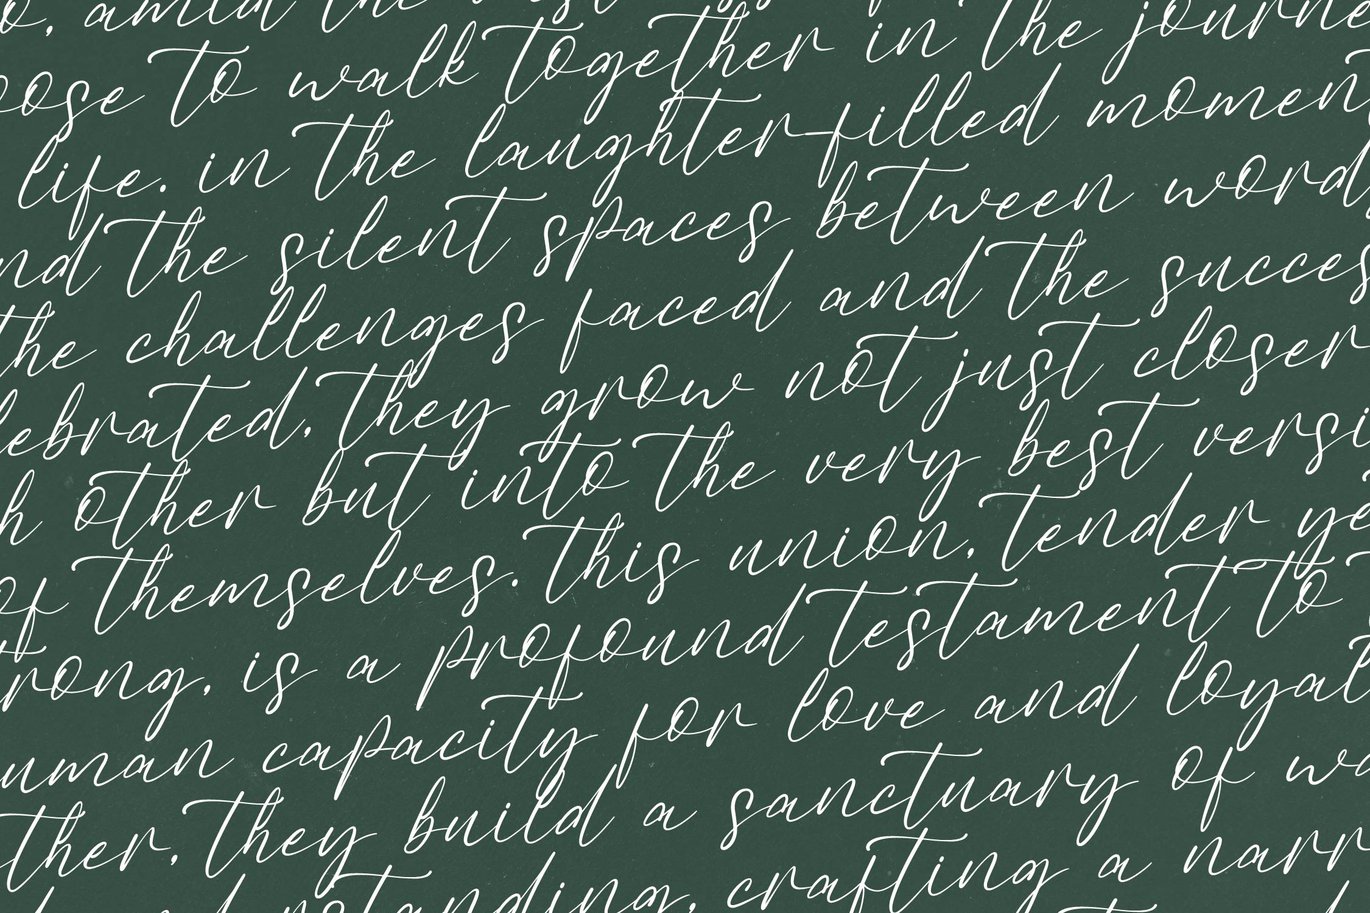 o, amid the
ose to walk together in the journe
life. in the laughter-filled momen
nd the silent spaces between word
the challenges faced and the succes
lebrated, they grow not just closer
h other but into the very best versi
of themselves. this union, tender ye
trong, is a profound testament to
uman capacity for love and loyal
ther, they build a sanctuary of wa
standing, crafting a narr